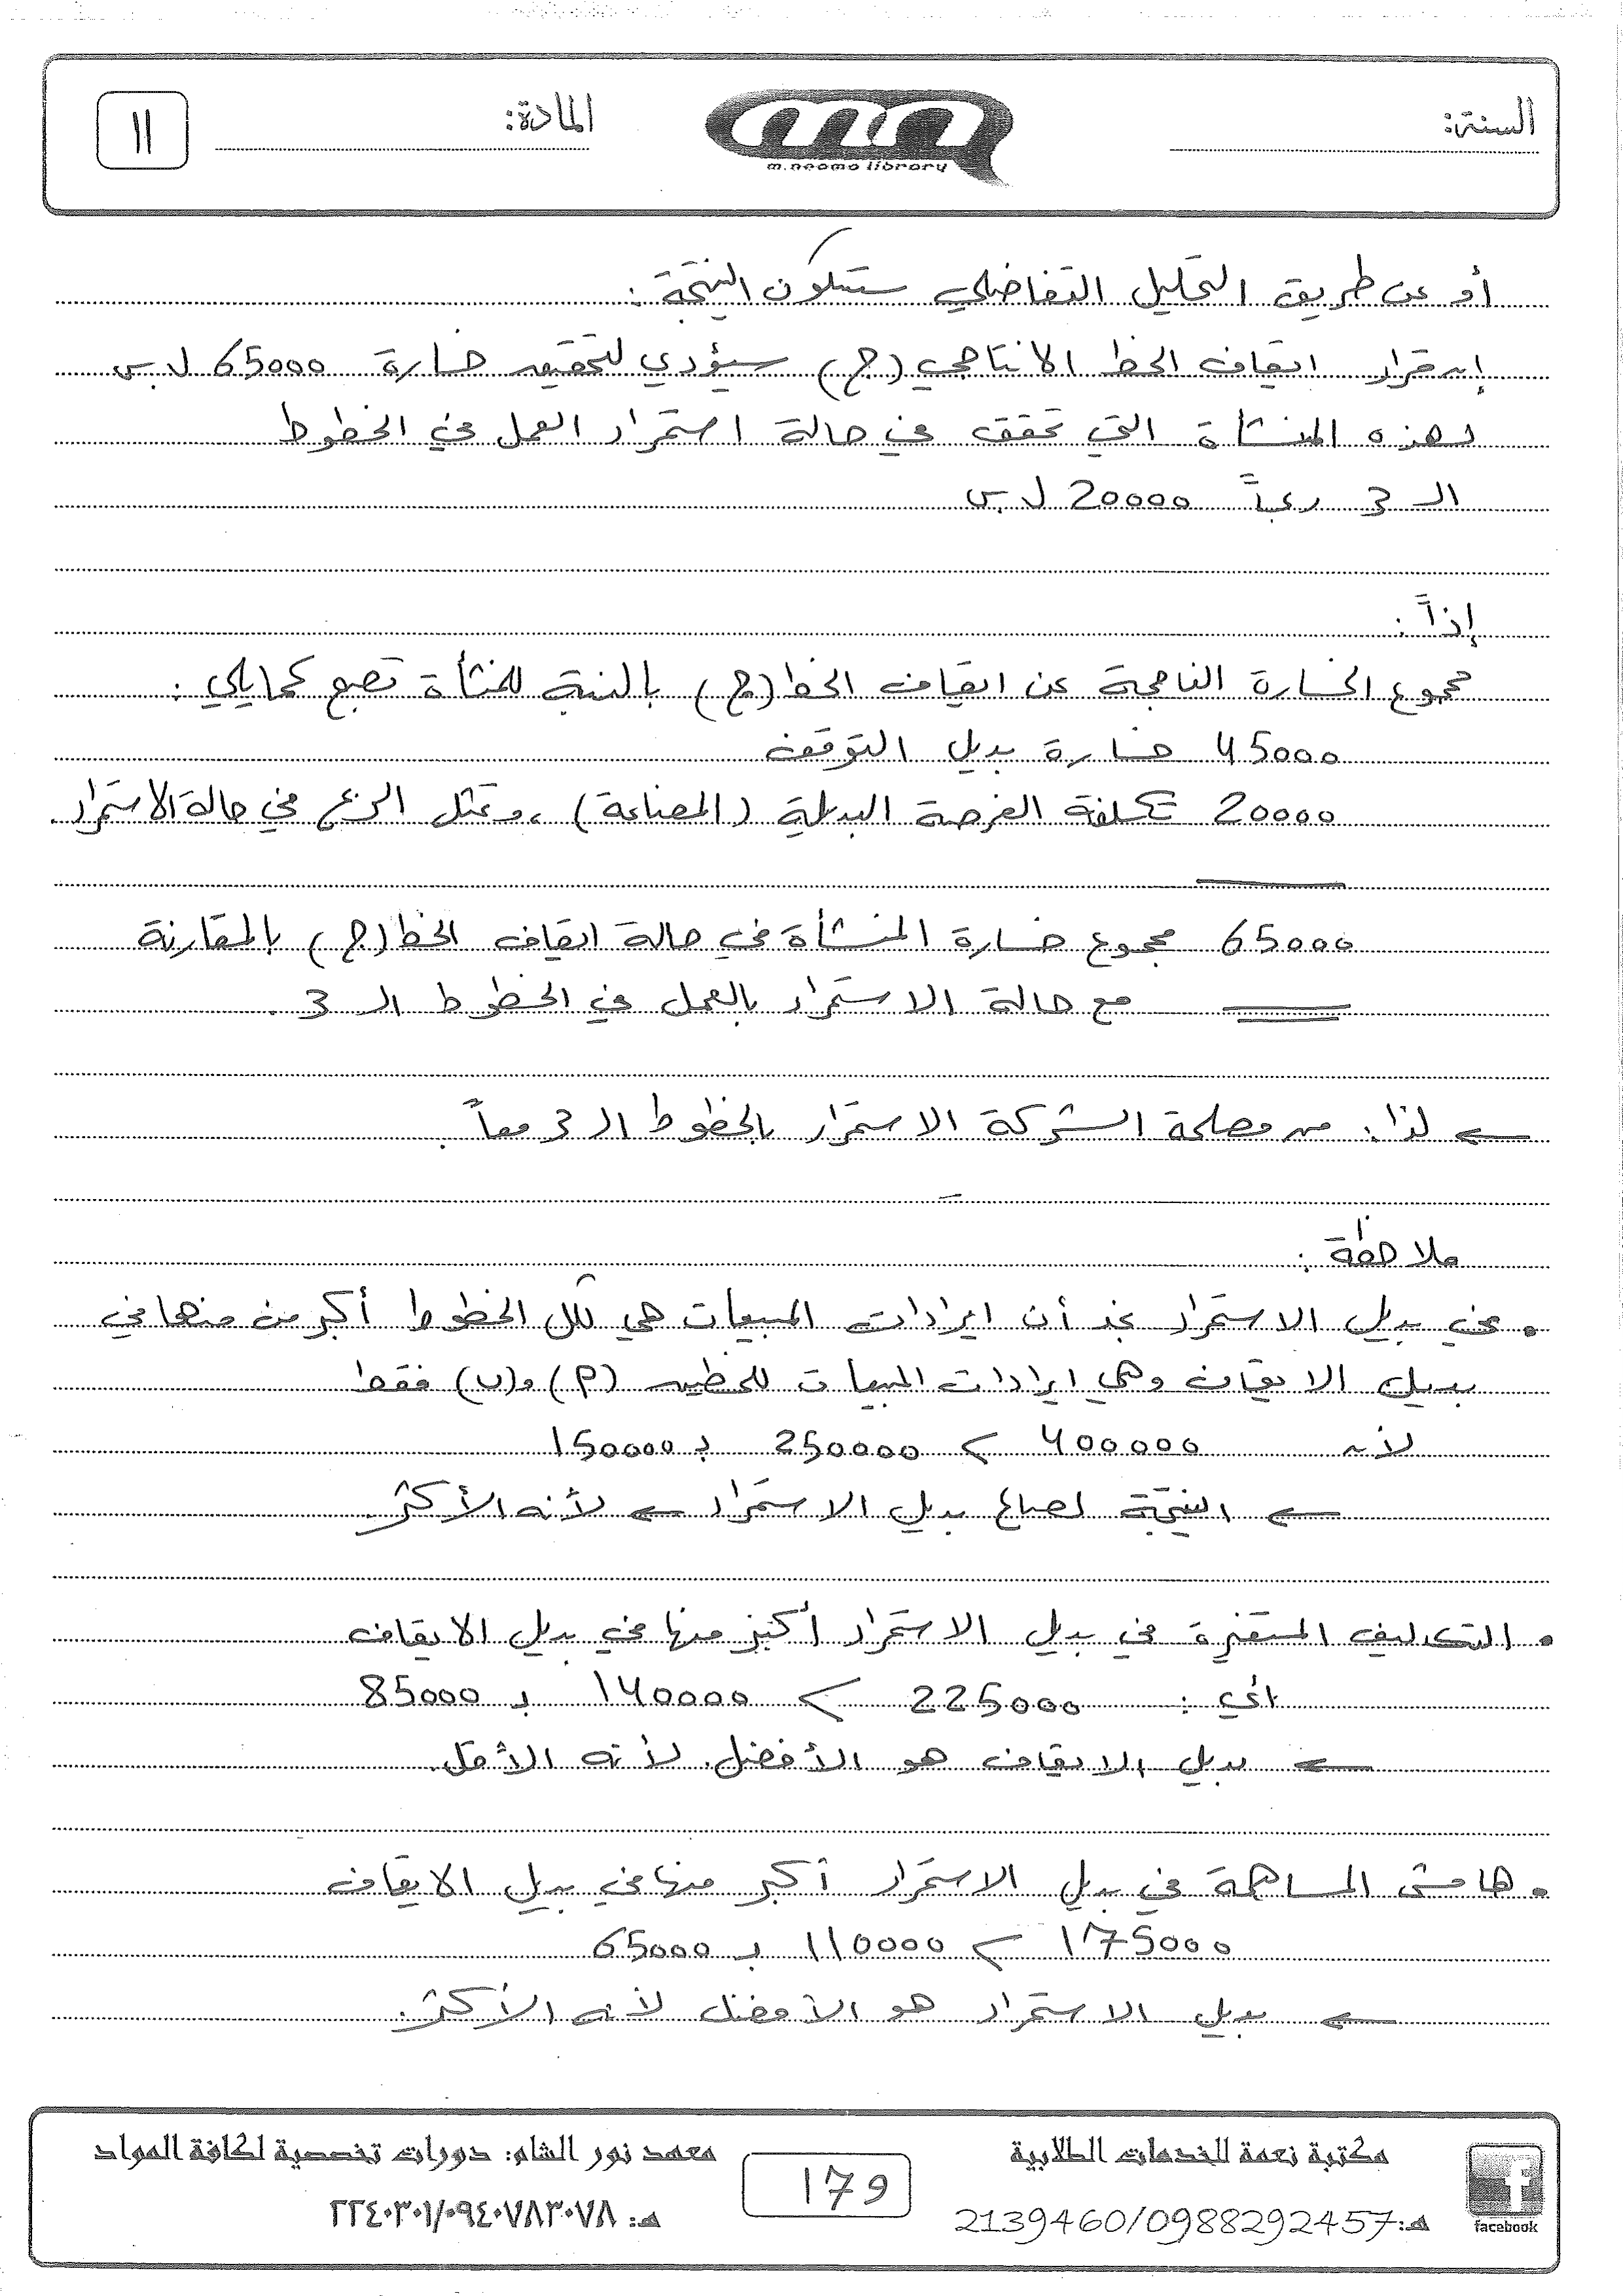 السنة:
m.neomo library
المادة:
11
أو عن طريق التحليل التفاضلي ستكون النتيجة :
إن قرار ايقاف الخط الانتاجي (ج) سيؤدي لتحقيق خسارة 65000 ل.س
لهذه المنشأة التي تحقق في حالة استمرار العمل في الخطوط
الـ 3 ربحاً 20000 ل.س
إذاً :
مجموع الخسارة الناجمة عن ايقاف الخط (ج) بالنسبة للمنشأة تصبح كمايلي :
45000 خسارة بديل التوقف
20000 تكلفة الفرصة البديلة (المضاعة) ، وتمثل الربح في حالة الاستمرار.
65000 مجموع خسارة المنشأة في حالة ايقاف الخط (ج) بالمقارنة
مع حالة الاستمرار بالعمل في الخطوط الـ 3.
← لذا : من مصلحة الشركة الاستمرار بالخطوط الـ 3 معاً.
ملاحظة :
• في بديل الاستمرار نجد أن ايرادات المبيعات هي لكل الخطوط أكبر من منها في
بديل الايقاف وهي ايرادات المبيعات للخطين (م) و(ب) فقط
لأن 400000 > 250000 بـ 150000
← النتيجة لصالح بديل الاستمرار ← لأنه الأكثر.
• التكاليف المتغيرة في بديل الاستمرار أكبر منها في بديل الايقاف
أي : 225000 > 140000 بـ 85000
← بديل الايقاف هو الأفضل. لأنه الأقل.
• هامش المساهمة في بديل الاستمرار أكبر منها في بديل الايقاف
175000 > 110000 بـ 65000
← بديل الاستمرار هو الأفضل لأنه الأكثر.
facebook
مكتبة نعمة للخدمات الطلابية
هـ: 2139460/0988292457
179
معهد نور الشام: دورات تخصصية لكافة المواد
هـ: ٢٢٤٠٣٠١/٠٩٤٠٧٨٣٠٧٨